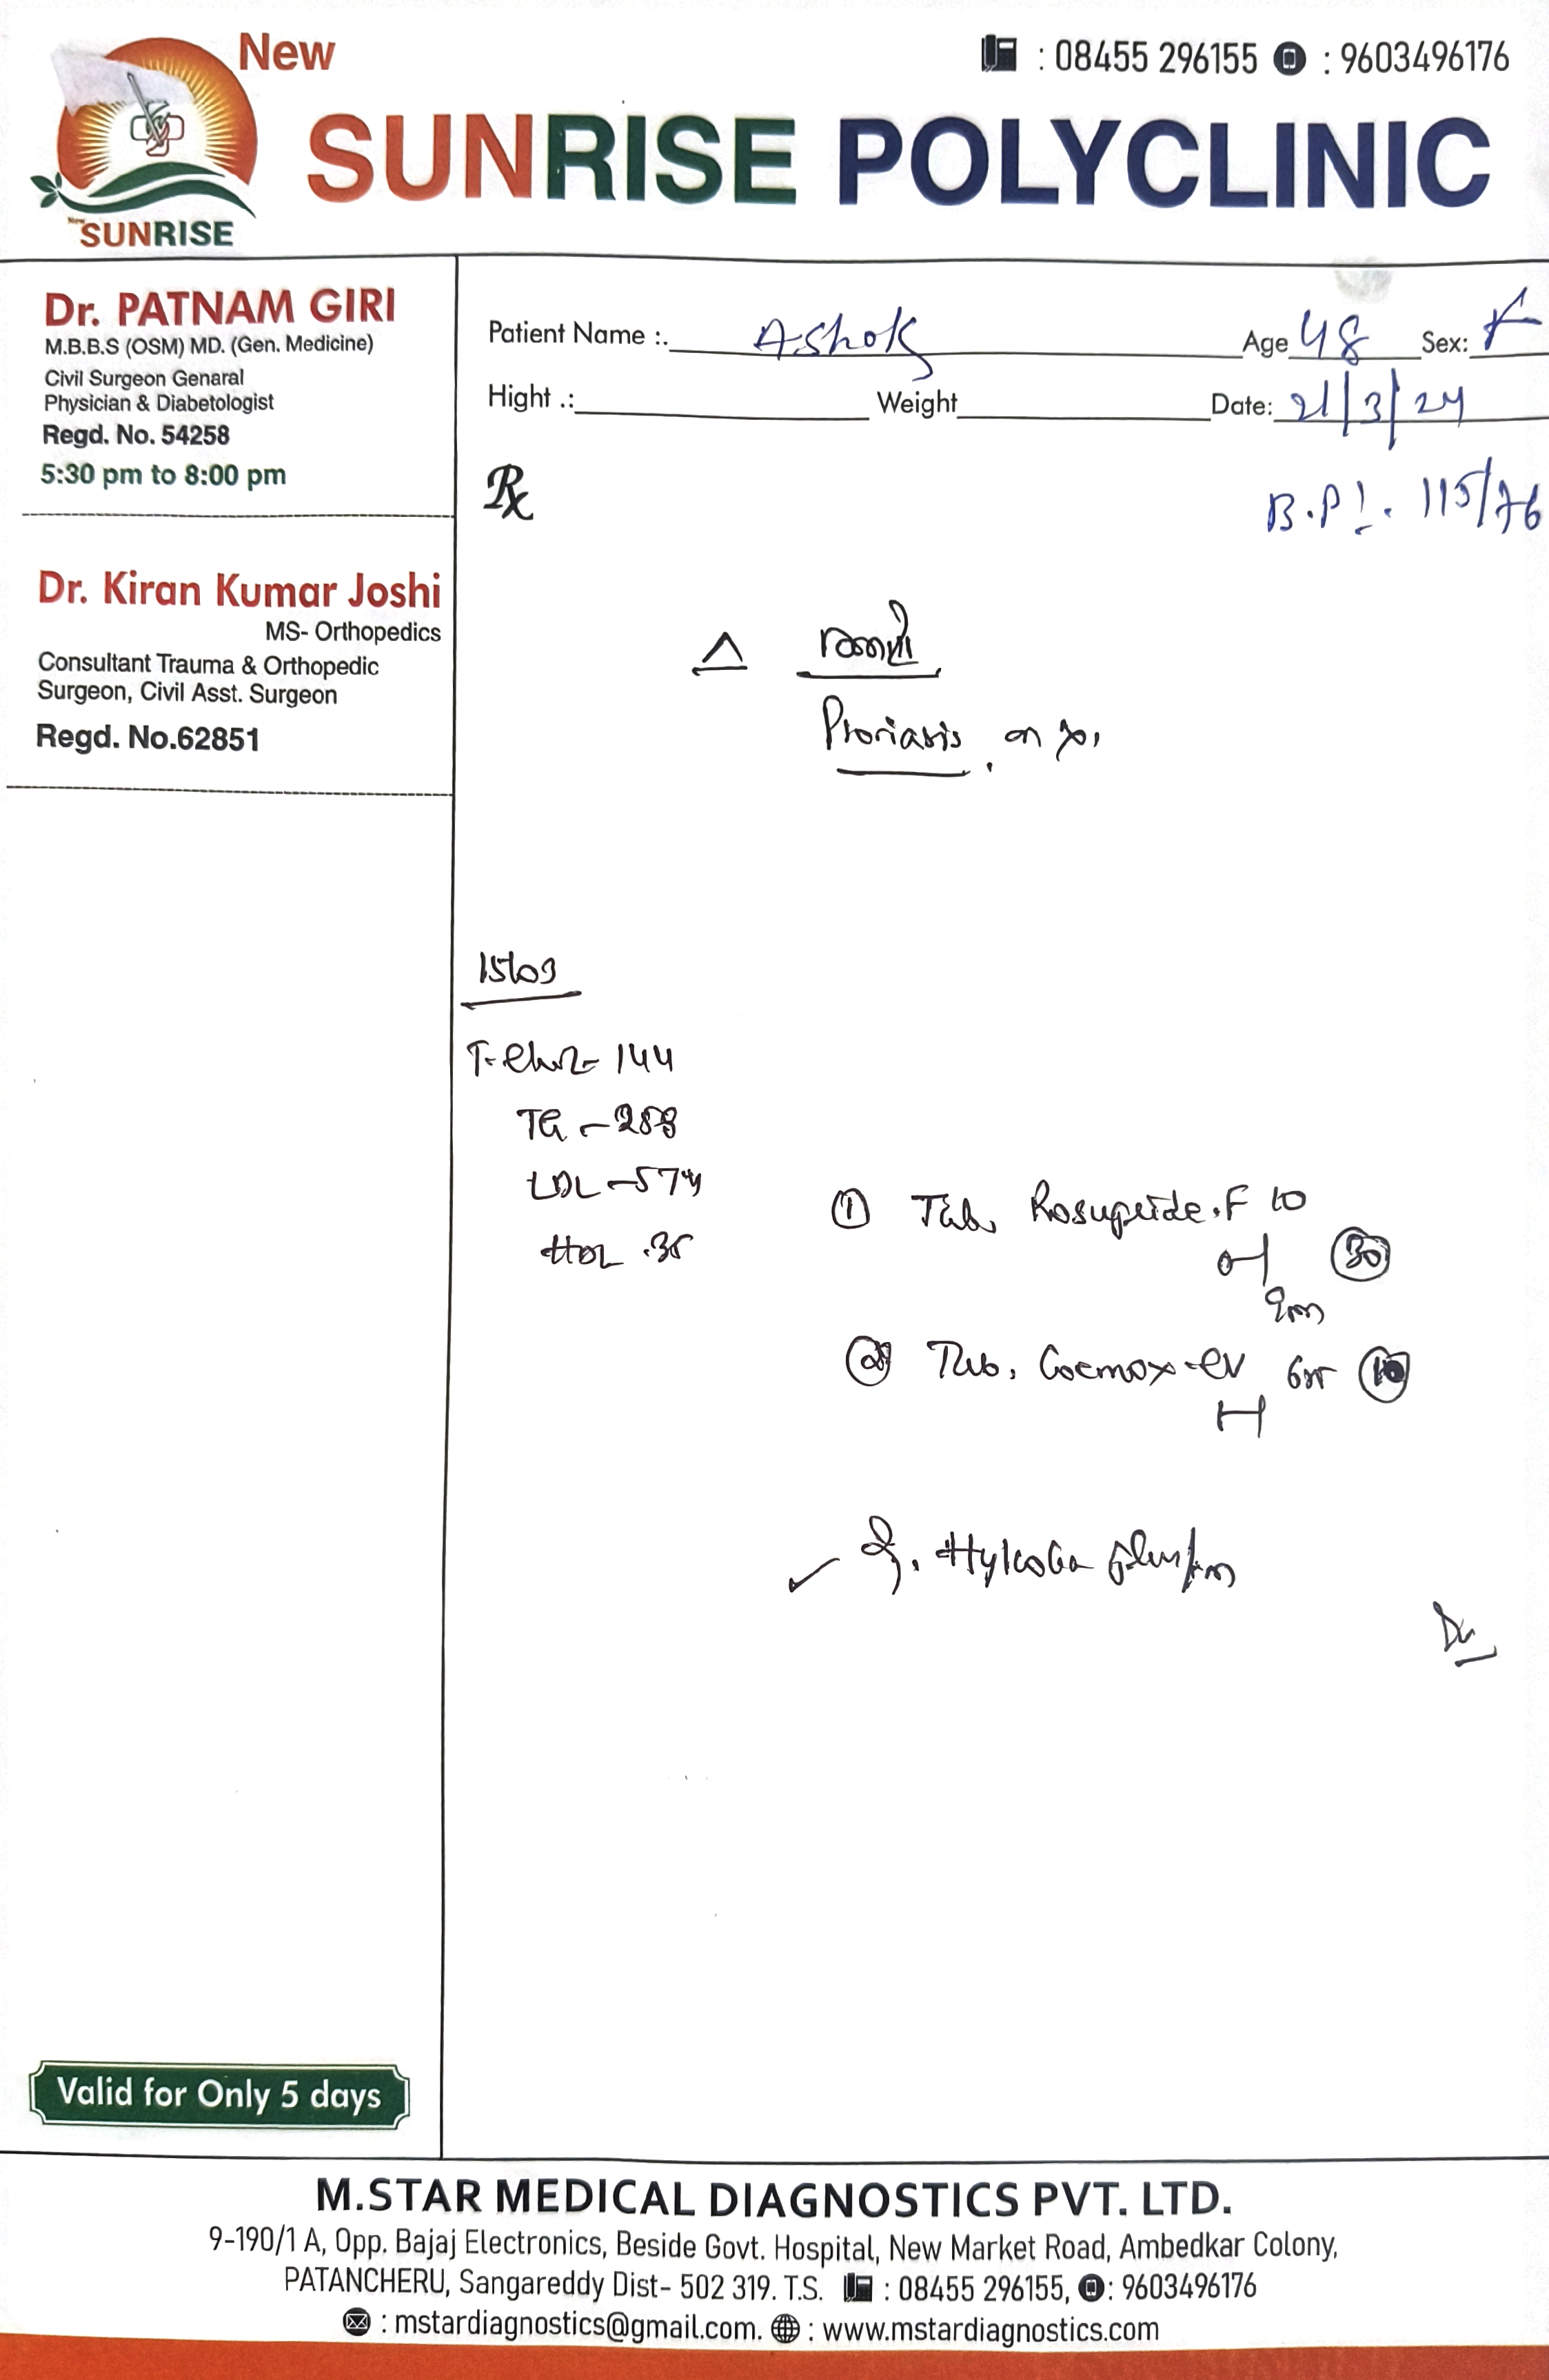 New
: 08455 296155 : 9603496176
SUNRISE POLYCLINIC
New
SUNRISE
Dr. PATNAM GIRI
M.B.B.S (OSM) MD. (Gen. Medicine)
Civil Surgeon Genaral
Physician & Diabetologist
Regd. No. 54258
5:30 pm to 8:00 pm
Dr. Kiran Kumar Joshi
MS- Orthopedics
Consultant Trauma & Orthopedic
Surgeon, Civil Asst. Surgeon
Regd. No.62851
Patient Name :. Ashok Age 48 Sex:
Hight .: Weight Date: 21/3/24
Rx
B.P:. 115/76
Δ
Psoriasis. on
15/03
T-Chol- 144
TG - 288
LDL -
HDL .35
① Tab. F 10
30
② Tab. -CV 625 10
Valid for Only 5 days
M.STAR MEDICAL DIAGNOSTICS PVT. LTD.
9-190/1 A, Opp. Bajaj Electronics, Beside Govt. Hospital, New Market Road, Ambedkar Colony,
PATANCHERU, Sangareddy Dist- 502 319. T.S. : 08455 296155, : 9603496176
: mstardiagnostics@gmail.com. : www.mstardiagnostics.com